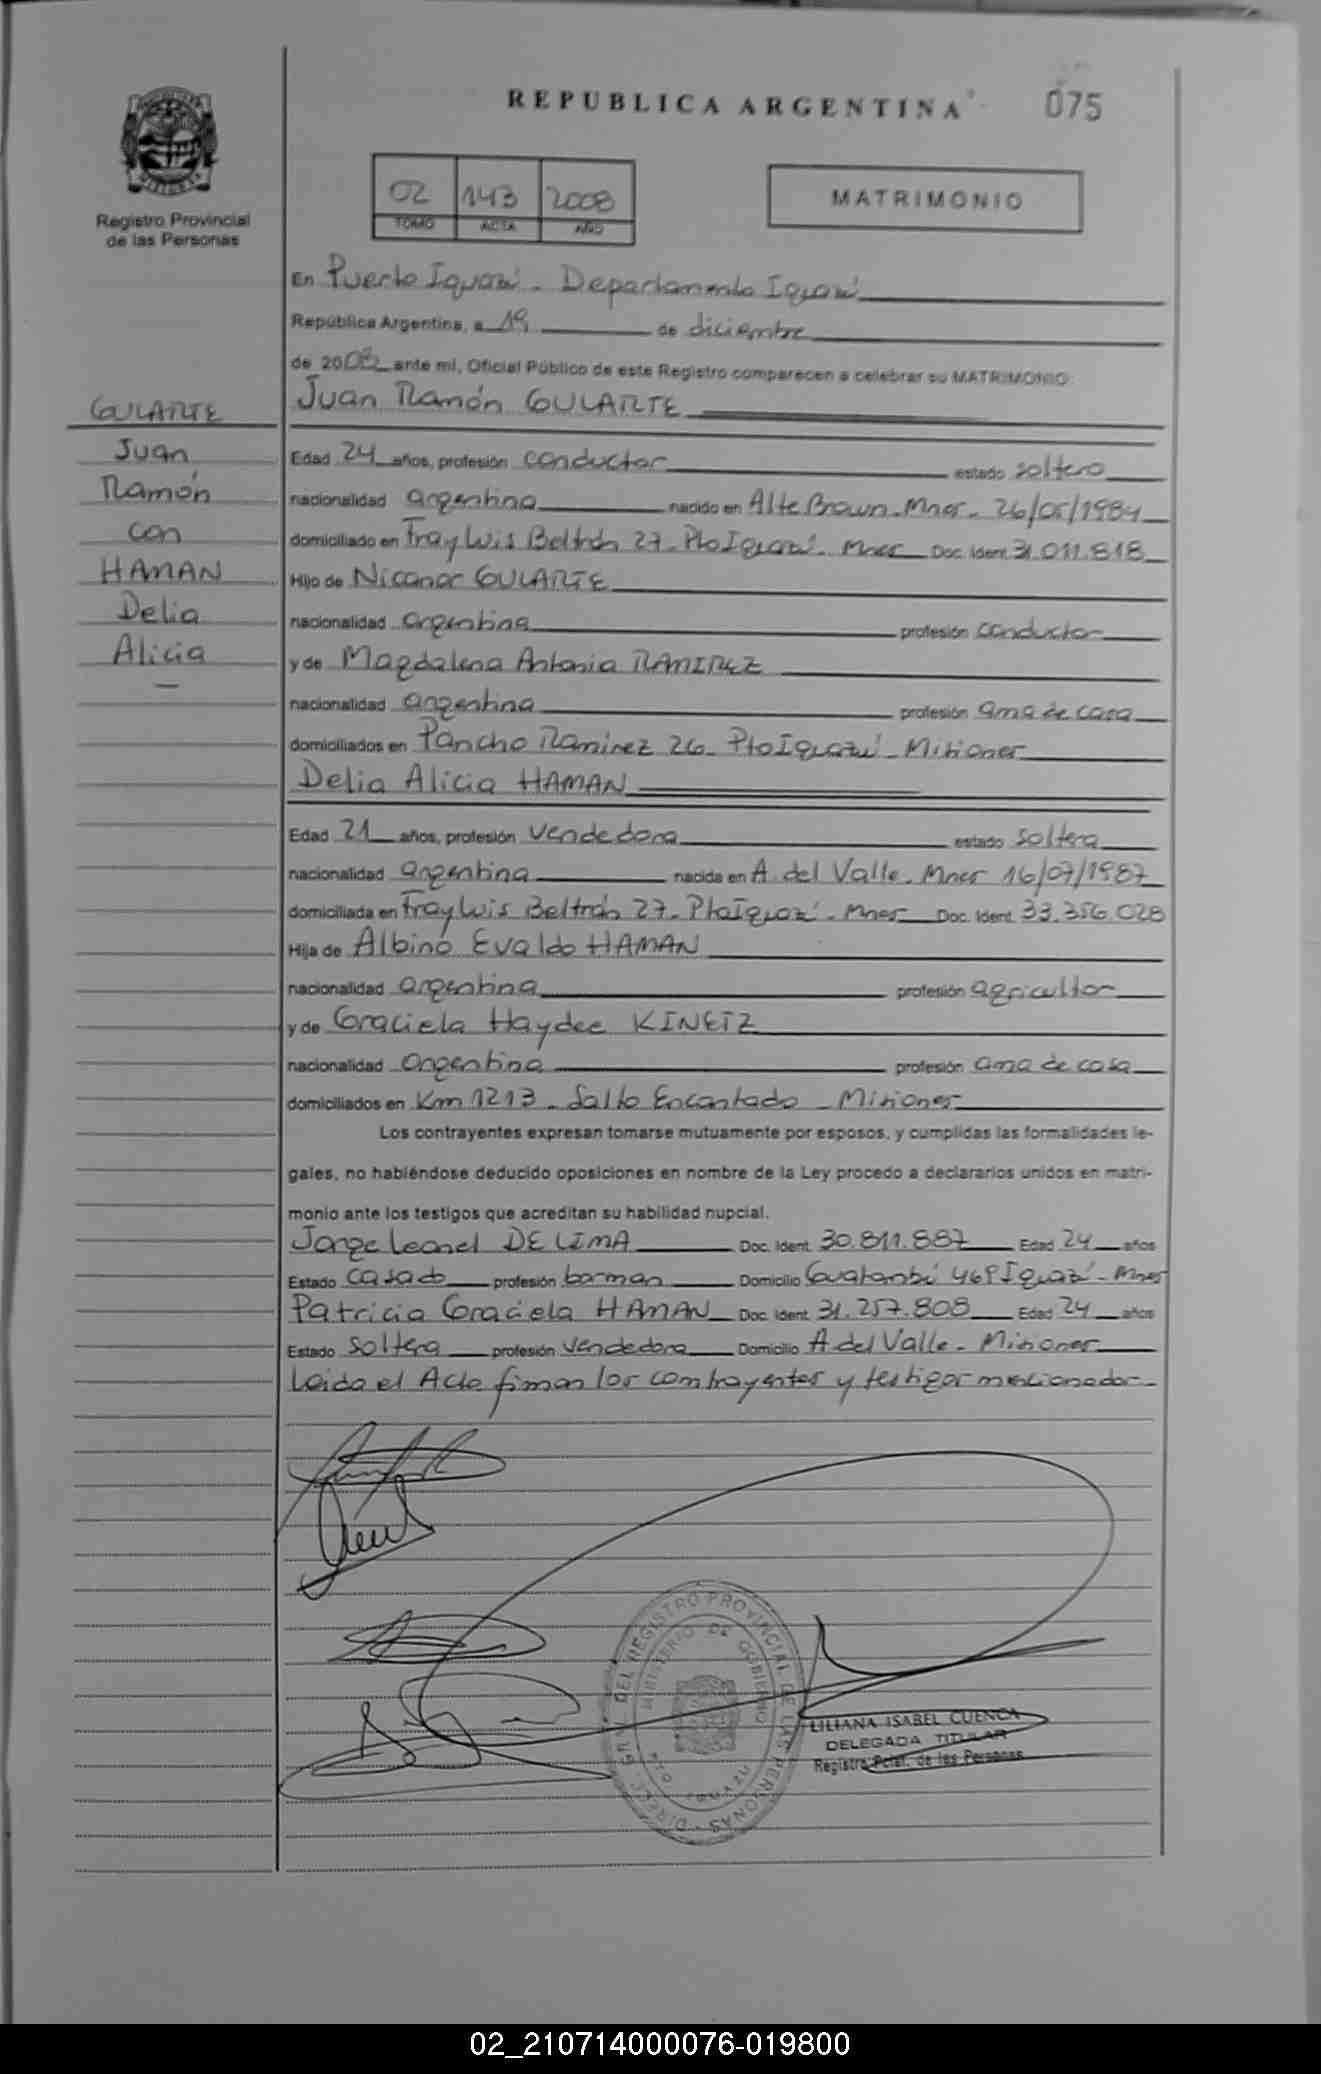 REPUBLICA ARGENTINA
075
Registro Provincial
de las Personas
02 143 2008
TOMO ACTA AÑO
MATRIMONIO
En Puerto Iguazú - Departamento Iguazú
República Argentina, a 19 de diciembre
de 2008 ante mi, Oficial Público de este Registro comparecen a celebrar su MATRIMONIO:
Juan Ramón GULARTE
GULARTE
Juan
Ramón
con
HAMAN
Delia
Alicia
Edad 24 años, profesión conductor estado soltero
nacionalidad argentina nacido en Alte Brown - Mnes - 26/05/1984
domiciliado en Fray Luis Beltrán 27 - Pto Iguazú - Mnes Doc. Ident. 31.011.818
Hijo de Nicanor GULARTE
nacionalidad argentina profesión conductor
y de Magdalena Antonia RAMIREZ
nacionalidad argentina profesión ama de casa
domiciliados en Pancho Ramirez 26 - Pto Iguazú - Misiones
Delia Alicia HAMAN
Edad 21 años, profesión vendedora estado soltera
nacionalidad argentina nacida en A. del Valle - Mnes 16/07/1987
domiciliada en Fray Luis Beltrán 27 - Pto Iguazú - Mnes Doc. Ident. 33.356.028
Hija de Albino Evaldo HAMAN
nacionalidad argentina profesión agricultor
y de Graciela Haydee KINETZ
nacionalidad argentina profesión ama de casa
domiciliados en Km 1213 - Salto Encantado - Misiones
Los contrayentes expresan tomarse mutuamente por esposos, y cumplidas las formalidades le-
gales, no habiéndose deducido oposiciones en nombre de la Ley procedo a declararlos unidos en matri-
monio ante los testigos que acreditan su habilidad nupcial.
Jorge Leonel DE LIMA Doc. Ident. 30.811.887 Edad 24 años
Estado casado profesión barman Domicilio Guatambú 469 Iguazú - Mnes
Patricia Graciela HAMAN Doc. Ident. 31.257.808 Edad 24 años
Estado soltera profesión vendedora Domicilio A. del Valle - Misiones
Leida el Acta firman los contrayentes y testigos mencionados -
DIREC. GRAL. DEL REGISTRO PROVINCIAL DE LAS PERSONAS
MINISTERIO DE GOBIERNO
PTO IGUAZU
LILIANA ISABEL CUENCA
DELEGADA TITULAR
Registro Pcial. de las Personas
02_210714000076-019800